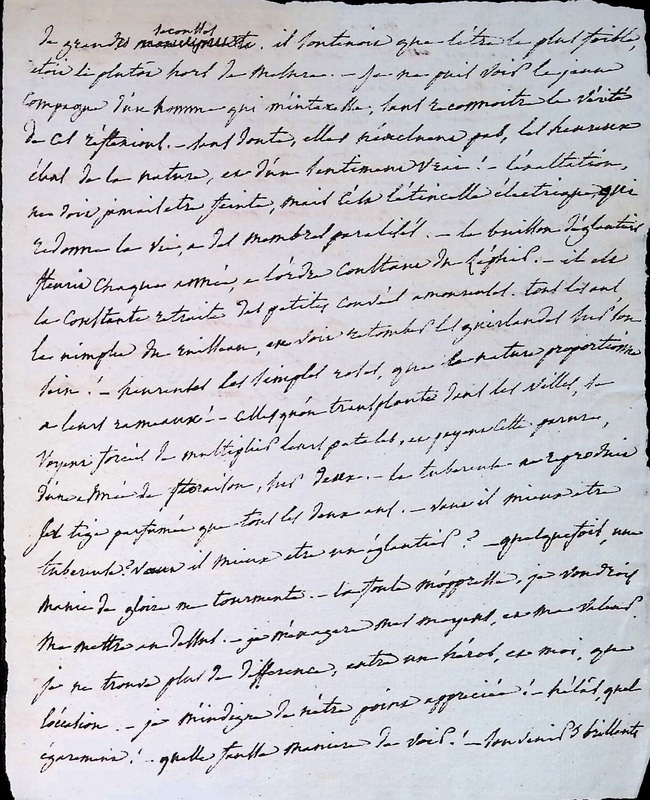 de grandes secousses. il soutenoit que l'être le plus foible,
étoit le plutôt hors de mesure. – je ne puis voir la jeune
compagne d'un homme qui m'intéresse, sans reconnoitre la vérité
de ces réflexions. – sans doute, elles n'excluent pas, les heureux
élans de la nature, et d'un sentiment vrai ! – l'exaltation,
ne doit jamais etre feinte, mais c'est l'étincelle électrique qui
redonne la vie, a des membres paralisés. – le buisson d'églantiers
fleurit chaque année, a l'ordre constant du Zéphir. – il est
la constante retraite des petites amoureuses. tous les ans
la nimphe du ruisseau, en voit retomber les guirlandes sur son
sein ! – heureuses les simples roses, que la nature proportionne
a leurs rameaux ! – celles qu'on transplante dans les villes, se
voyent forcées de multiplier leurs petales, et payent cette parure,
d'une année de floraison, sur deux. – la tubereuse ne reproduit
sa tige parfumée que tous les deux ans. – vaut il mieux etre
tubereuse ? vaut il mieux etre un églantier ? – quelquefois, une
manie de gloire me tourmente. – la foule m'oppresse, je voudrois
me mettre au dessus. – je m'exagere mes moyens, et ma valeur.
je ne trouve plus de difference, entre un héros, et moi, que
l'occasion. – je m'indigne de n'être point appréciée ! – hélas, quel
égarement ! – quelle fausse maniere de voir ! – souvenirs brillants